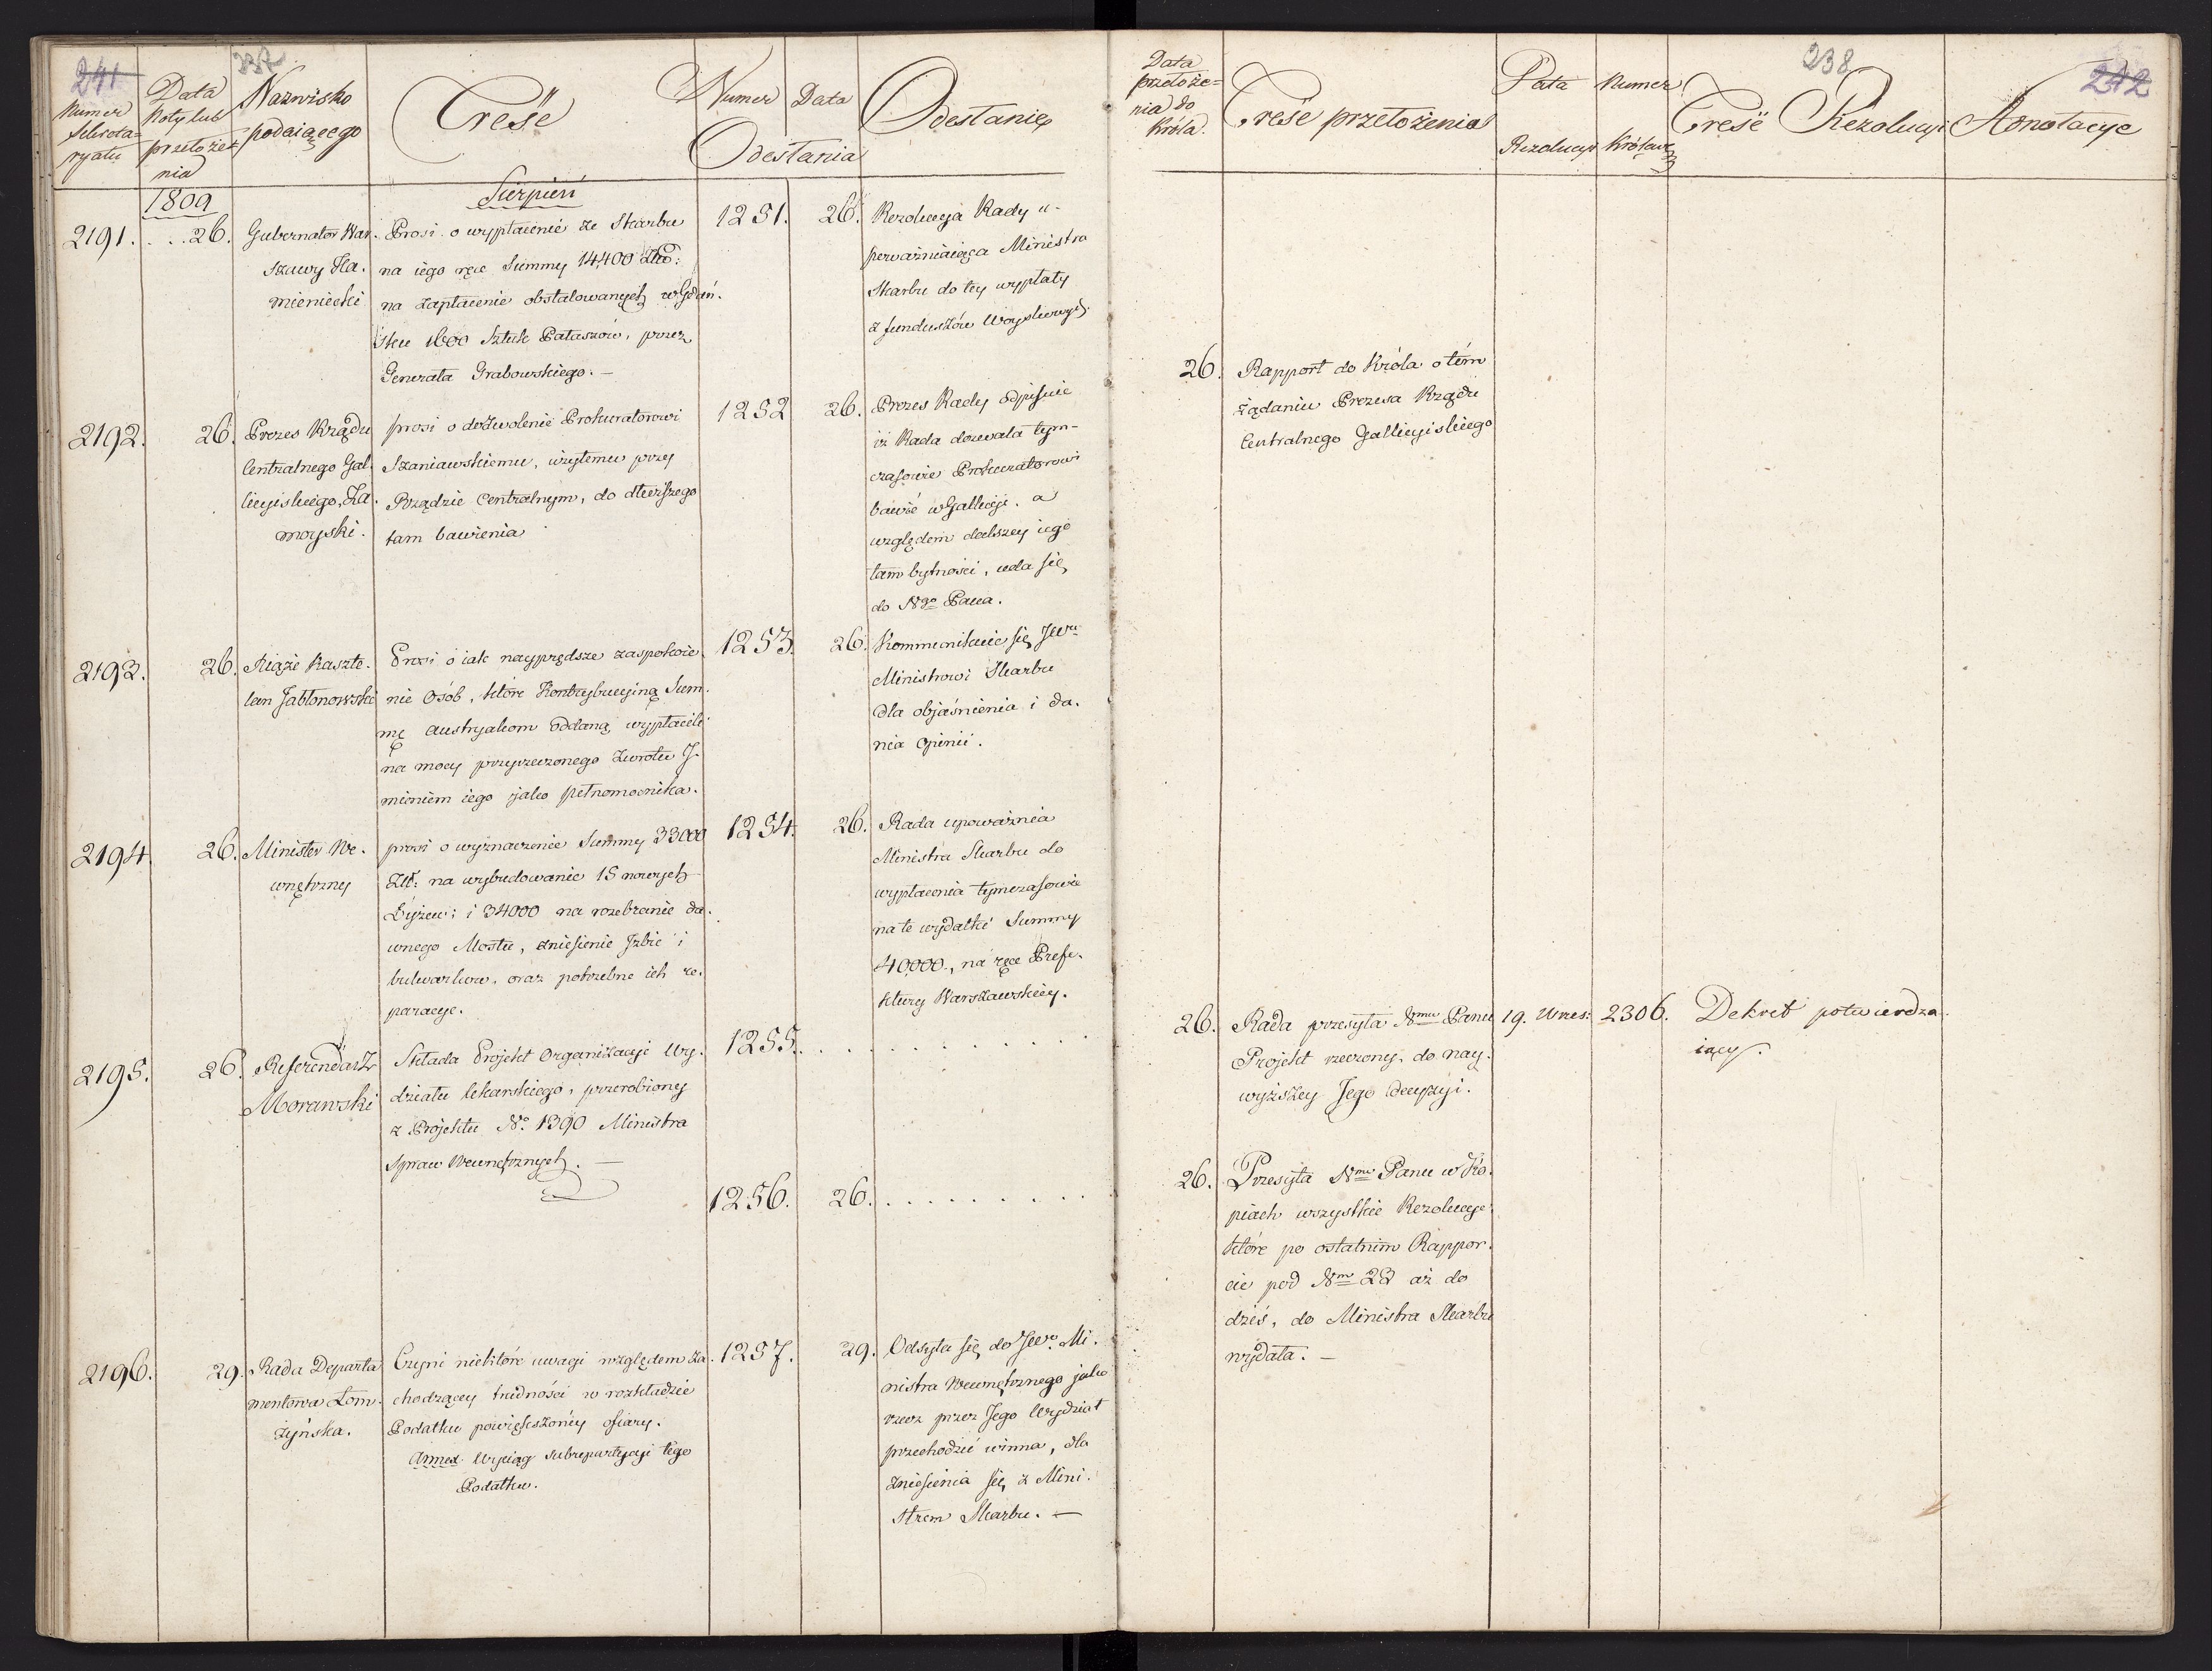 241
237
Numer
Sekreta=
ryatu
Data
Noty lub
przełoże=
nia
Nazwisko
podaiącego
Treść
Numer Data
Odesłania
Odesłanie
1809
Sierpień
2191. . . . 26.
Gubernator War.
szawy Ka.
mieniecki
Prosi o wypłacenie ze Skarbu
na iego ręce Summy 14,400 Złł:
na zapłacenie obstalowanych w Gdań.
sku 1600 Sztuk Pałaszów, przez
Generała Grabowskiego. —
1251. 26.
Rezolucyja Rady u-
poważniaiąca Ministra
Skarbu do tey wypłaty
z funduszów Woyskowych.
2192. 26.
Prezes Rządu
Centralnego Gal.
licyiskiego, Za.
moyski.
prosi o dozwolenie Prokuratorowi
Szaniawskiemu, użytemu przy
Rządzie Centralnym, do dłuższego
tam bawienia
1252 26.
Prezes Rady odpisuie
iż Rada dozwala tym-
czasowie Prokuratorowi
bawić w Gallicyi. a
względem dalszey iego
tam bytności, uda się
do Ngo Pana.
2193. 26.
Xiąże Kaszte.
lan Jabłonowski
Prosi o iak nayprędsze zaspokoie.
nie Osób, które Kontrybucyiną Sum.
mę Austryakom oddaną wypłacili
na mocy przyrzeczonego Zwrotu J.
mieniem iego jako pełnomocnika.
1253. 26.
Kommunikuie się JWu
Ministrowi Skarbu
dla objaśnienia i da.
nia opinii.
2194. 26.
Minister We.
wnętrzny
prosi o wyznaczenie Summy 33000
Złł: na wybudowanie 15 nowych
Łyżew: i 34000 na rozebranie da.
wnego Mostu, zniesienie Izbic i
bulwarkow, oraz potrzebne ich re.
paracye.
1254. 26.
Rada upoważnia
Ministra Skarbu do
wypłacenia tymczasowie
na te wydatki Summy
40,000., na ręce Prefe.
ktury Warszawskiey.
2195. 26.
Referendarz
Morawski
Składa Projekt Organizacyi Wy.
działu lekarskiego, przerobiony
z Projektu No. 1390 Ministra
Spraw Wewnętrznych. —
1255. . . . . . . . . . .
1256. 26. . . . . . . . . .
2196. 29.
Rada Departa
mentowa Łom.
żyńska.
Czyni niektóre uwagi względem za.
chodzącey trudności w rozkładzie
Podatku powiększoney ofiary.
Annex Wyciąg subrepartycyi tego
Podatku.
1257. 29.
Odsyła się do JWo. Mi.
nistra Wewnętrznego jako
rzecz przez Jego Wydział
przechodzić winna, dla
zniesienia się z Mini.
strem Skarbu. —
238
242
Data
przełoże=
nia do
Króla.
Treść przełożenia
Data Numer
Rezolucyi Królews:
Treść Rezolucyi
Annotacye
26. Rapport do Króla o tém
żądaniu Prezesa Rządu
Centralnego Gallicyiskiego
26. Rada przesyła Nmu Panu
Projekt rzeczony, do nay.
wyższey Jego decyzyi.
19. Wrześ: 2306. Dekret potwierdza.
iący.
26. Przesyła Nmu Panu w Ko.
piach wszystkie Rezolucye
które po ostatnim Rappor.
cie pod Nm 23 aż do
dziś, do Ministra Skarbu
wydała. —